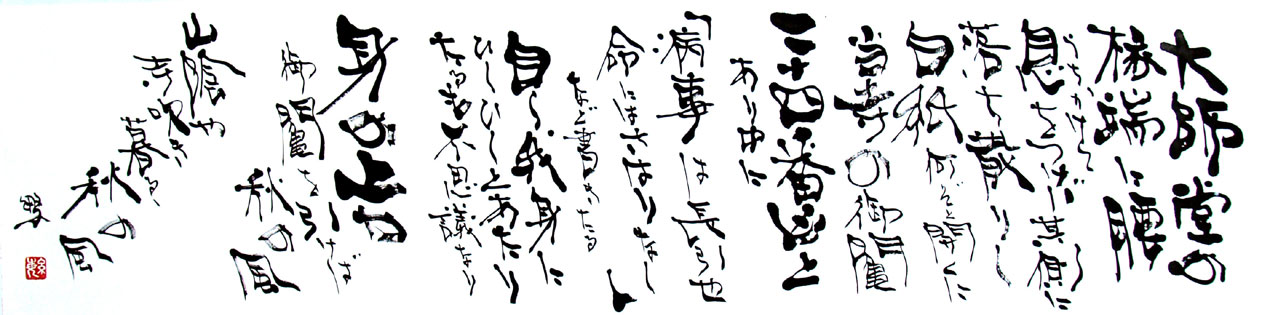 大師堂の
縁端に腰
うちかけて
息をつけば其側に
落ち散りし
白紙何ぞと開くに
当寺の御鬮
二十四番凶と
あり中に
「病事は長引也
命にはさはりなし」
など書きたる
自ら我身に
ひしひしとあたり
たるも不思議なり
身の上や
御鬮を引けば
秋の風
山陰や
寺吹き
暮るゝ
秋の風